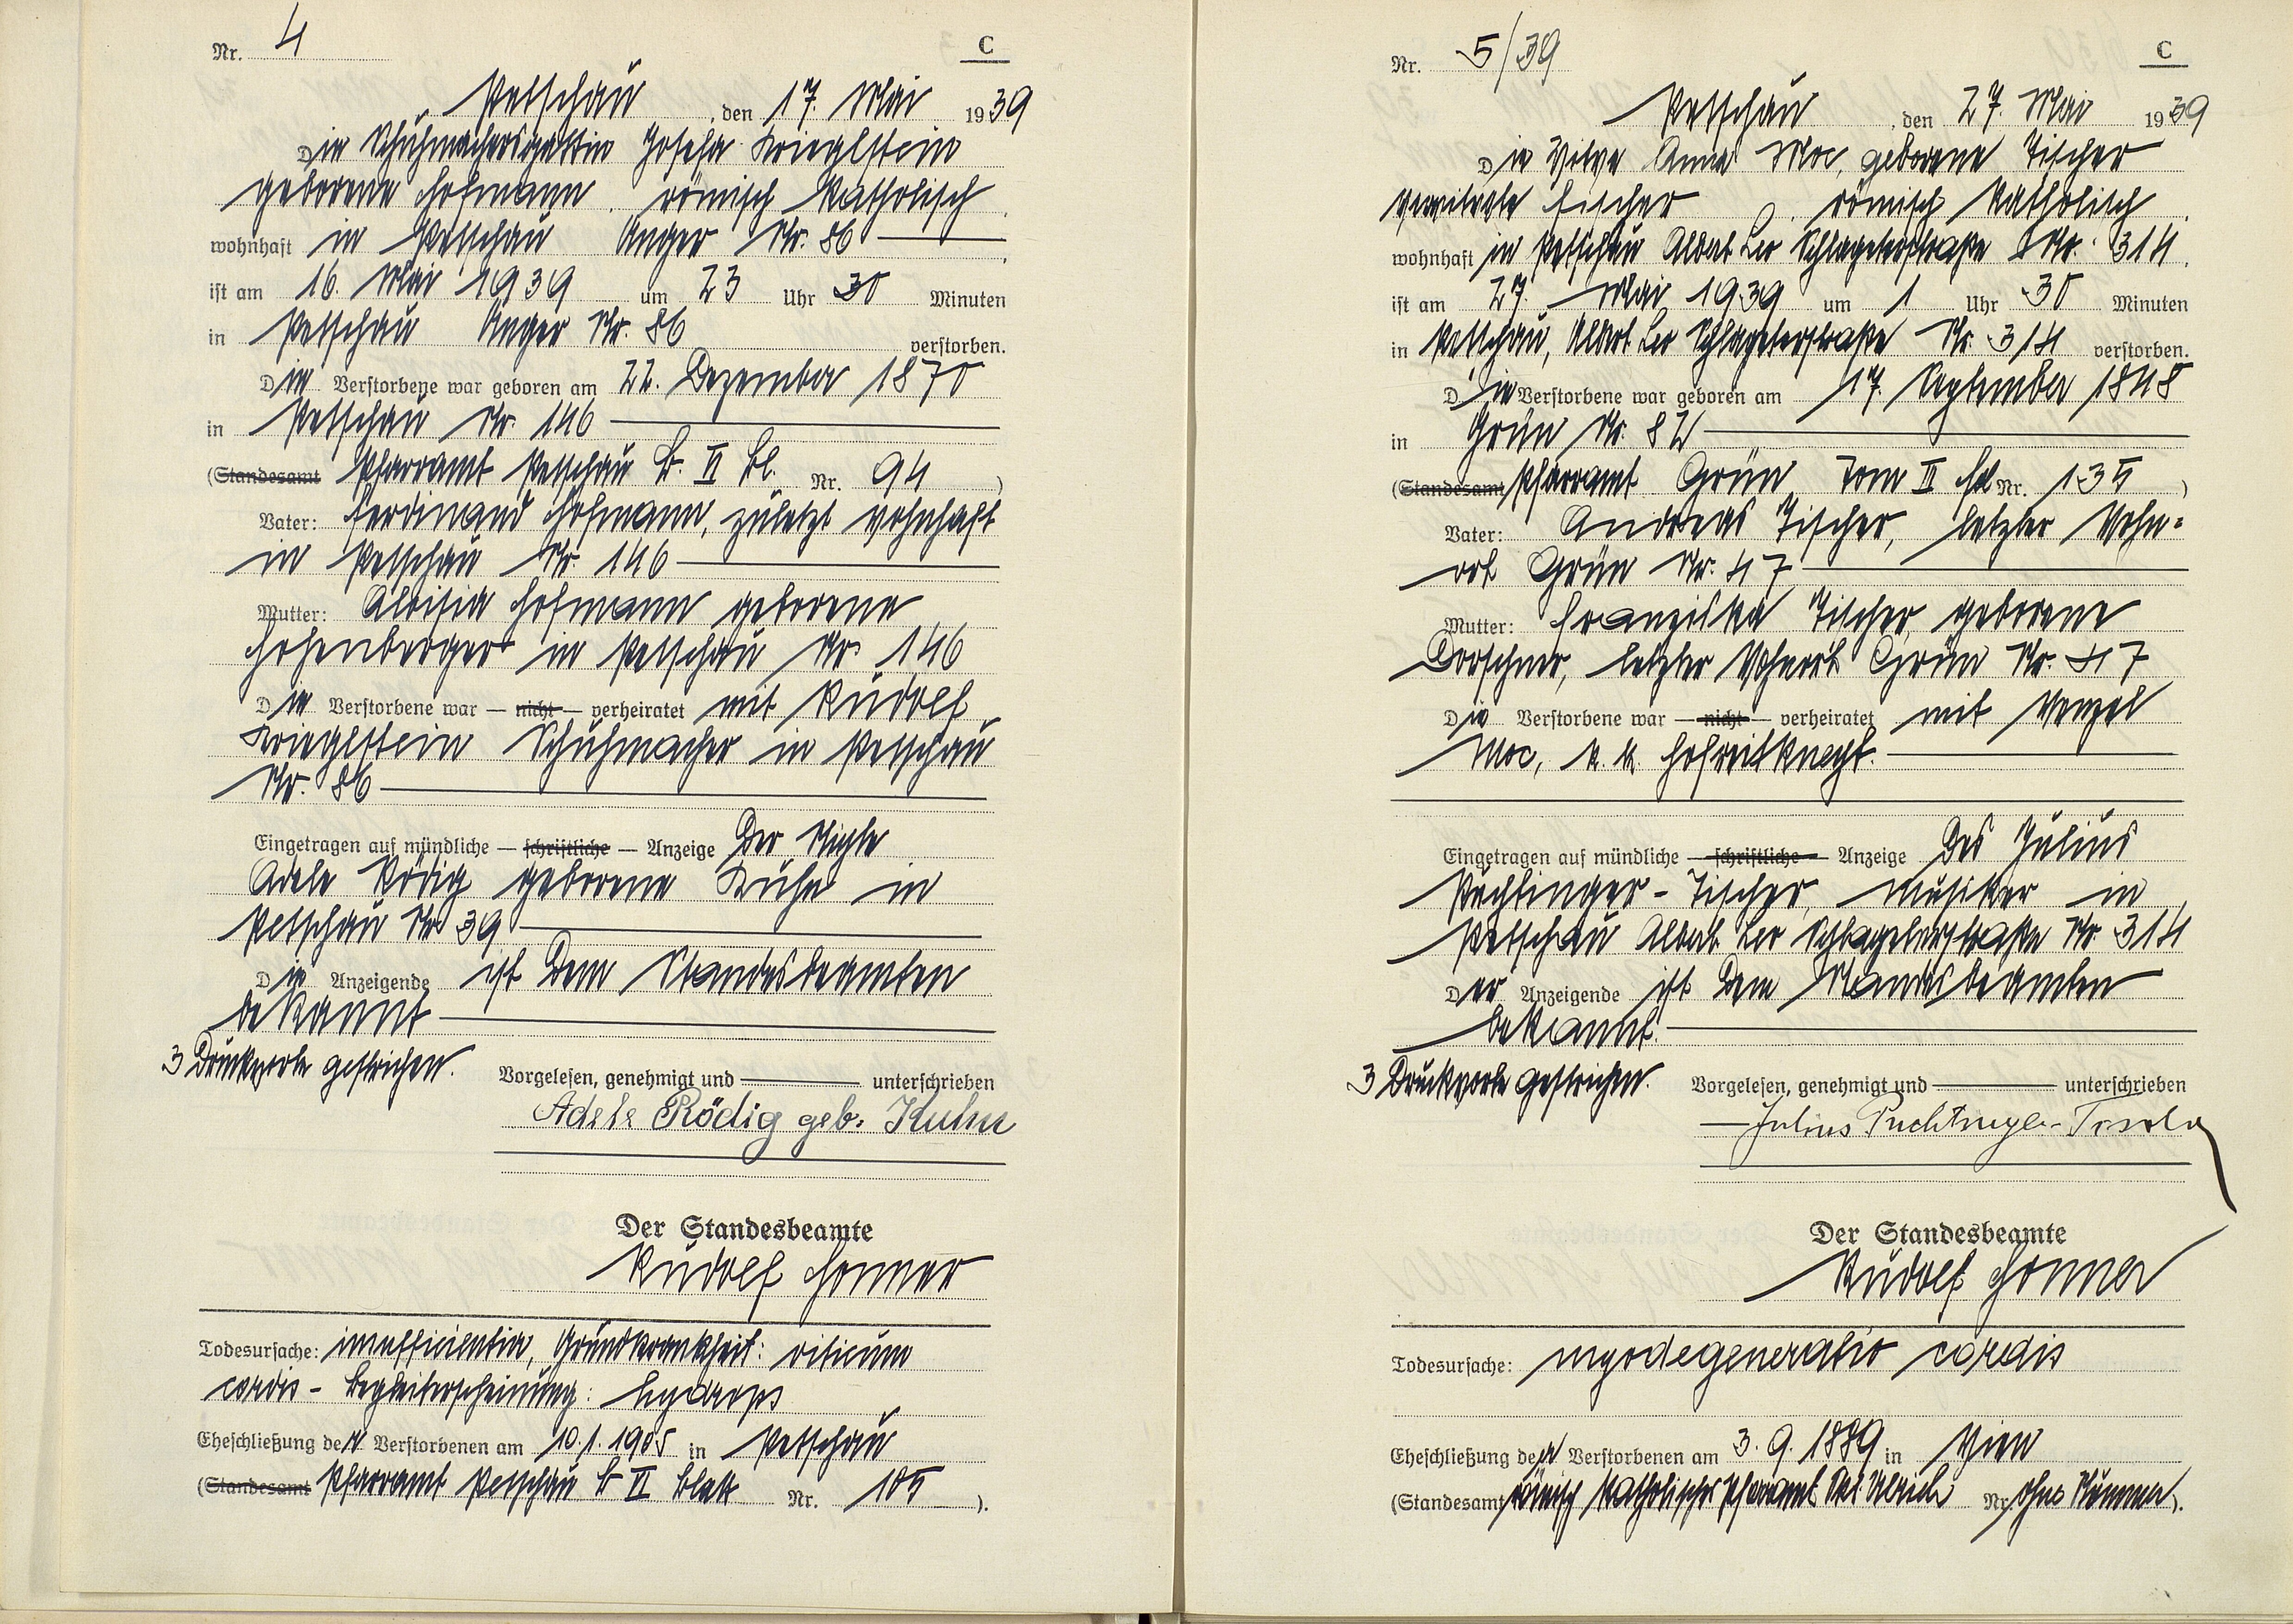 Nr. 4 C
Petschau, den 17. Mai 1939
Die Schuhmachersgattin Josefa Krieglstein
geborene Hofmann, römisch katholisch,
wohnhaft in Petschau Anger Nr. 86
ist am 16. Mai 1939 um 23 Uhr 30 Minuten
in Petschau Anger Nr. 86 verstorben.
Die Verstorbene war geboren am 22. Dezember 1870
in Petschau Nr. 146
(Standesamt Pfarramt Petschau B. II Bl. Nr. 94)
Vater: Ferdinand Hofmann, zuletzt wohnhaft
in Petschau Nr. 146
Mutter: Aloisia Hofmann geborene
Hohenberger in Petschau Nr. 146
Die Verstorbene war — nicht — verheiratet mit Rudolf
Krieglstein Schuhmacher in Petschau
Nr. 86
Eingetragen auf mündliche — schriftliche — Anzeige der Nichte
Adele Rödig geborene Kuhn in
Petschau Nr 39
Die Anzeigende ist dem Standesbeamten
bekannt
3 Druckworte gestrichen.
Vorgelesen, genehmigt und unterschrieben
Adele Rödig geb. Kuhn
Der Standesbeamte
Rudolf Honner
Todesursache: insufficientia, Grundkrankheit: vitium
cordis - Begleiterscheinung: hydrops
Eheschließung der Verstorbenen am 10.1.1905 in Petschau
(Standesamt Pfarramt Petschau B II Blatt Nr. 105).
Nr. 5/39 C
Petschau, den 27. Mai 1939
Die Witwe Anna Moc, geborene Tischer
verwitwete Fischer, römisch katholisch,
wohnhaft in Petschau Albert Leo Schlageterstraße Nr. 314,
ist am 27. Mai 1939 um 1 Uhr 30 Minuten
in Petschau, Albert Leo Schlageterstraße Nr. 314 verstorben.
Die Verstorbene war geboren am 17. September 1848
in Grün Nr. 82
(Standesamt Pfarramt Grün Tom II fol Nr. 135)
Vater: Andreas Tischer, letzter Wohn=
ort Grün Nr. 47
Mutter: Franziska Tischer, geborene
Dorschner, letzter Wohnort Grün Nr. 47
Die Verstorbene war — nicht — verheiratet mit Wenzel
Moc, k. k. Hofreitknecht.
Eingetragen auf mündliche — schriftliche — Anzeige des Julius
Puchtinger-Tischer, Musiker in
Petschau Albert Leo Schlageterstraße Nr. 314
Der Anzeigende ist dem Standesbeamten
bekannt.
3 Druckworte gestrichen.
Vorgelesen, genehmigt und unterschrieben
Julius Puchtinger-Tischer
Der Standesbeamte
Rudolf Honner
Todesursache: myodegeneratio cordis
Eheschließung der Verstorbenen am 3. 9. 1889 in Wien
(Standesamt römisch katholisches Pfarramt Skt. Ulrich Nr. ohne Nummer).